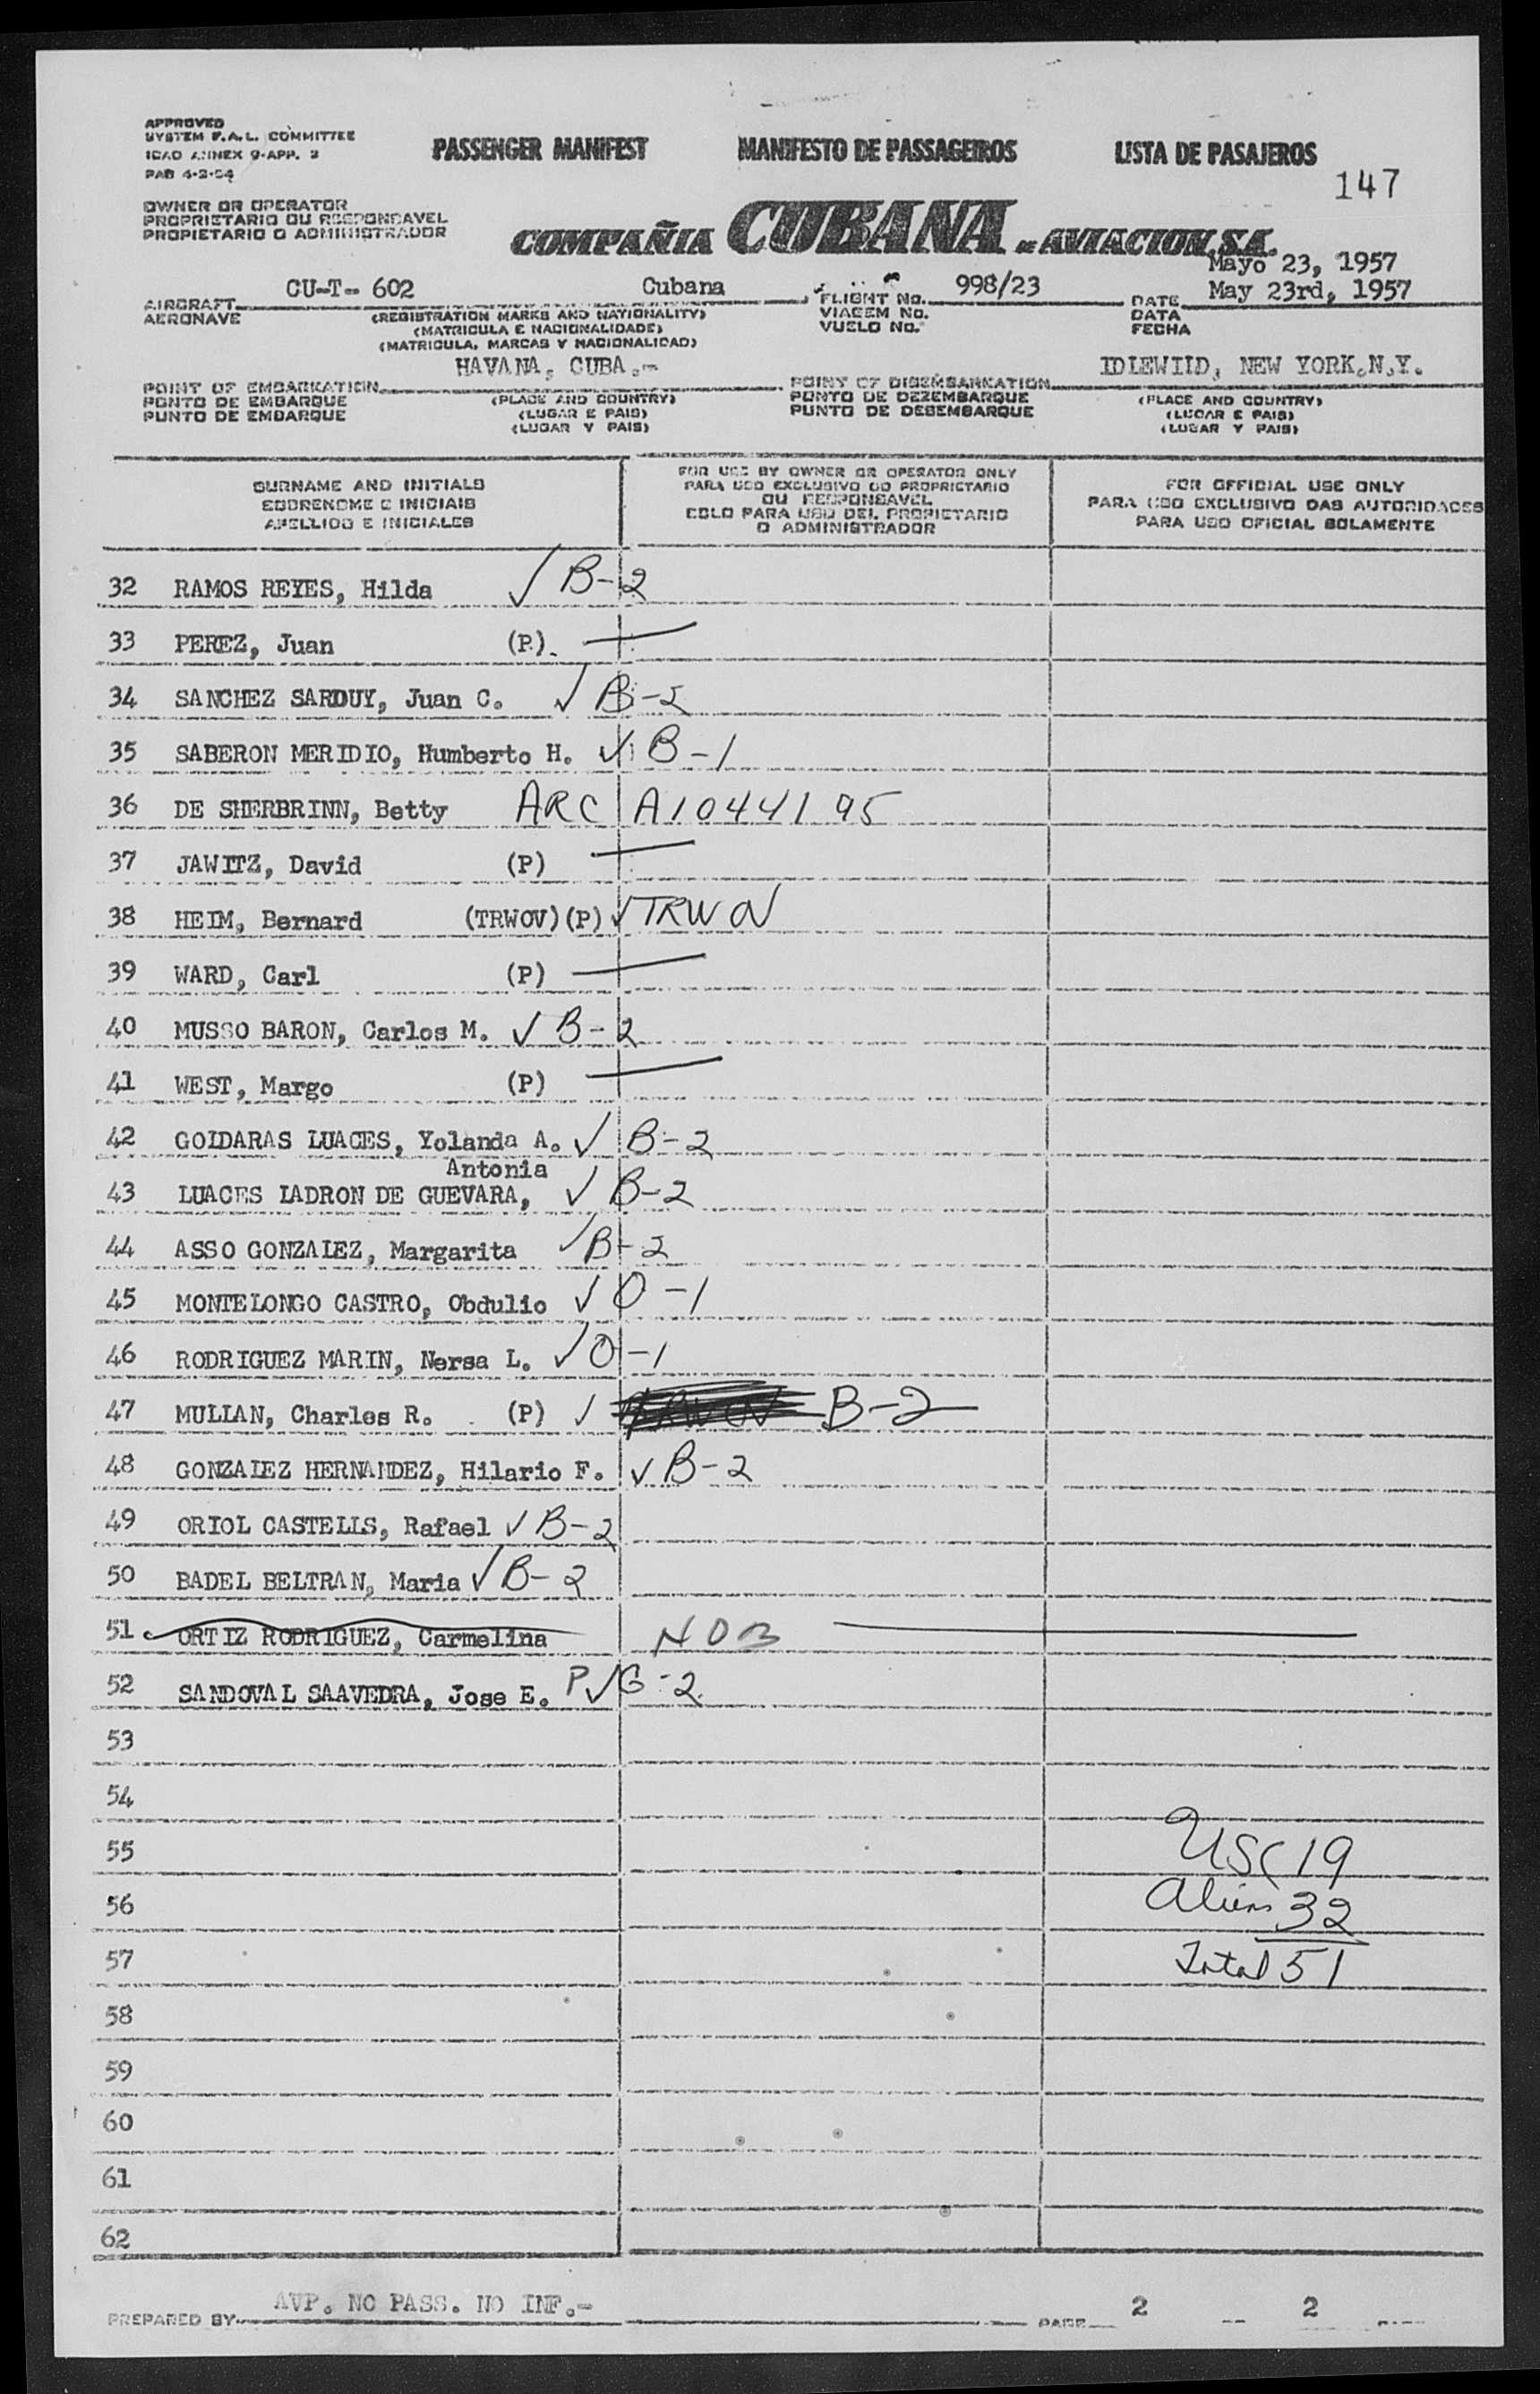 APPROVED
SYSTEM F.A.L. COMMITTEE
ICAO ANNEX 9-APP. 3
PAB 4-2-54
PASSENGER MANIFEST MANIFESTO DE PASSAGEIROS LISTA DE PASAJEROS
147
OWNER OR OPERATOR
PROPRIETARIO OU RESPONSAVEL
PROPIETARIO O ADMINISTRADOR
COMPAÑIA CUBANA DE AVIACION, S.A.
Mayo 23, 1957
CU-T- 602 Cubana 998/23 May 23rd, 1957
AIRCRAFT FLIGHT No. DATE
AERONAVE (REGISTRATION MARKS AND NATIONALITY) VIAGEM No. DATA
(MATRICULA E NACIONALIDADE) VUELO No. FECHA
(MATRICULA, MARCAS Y NACIONALIDAD)
HAVANA, CUBA.- IDLEWILD, NEW YORK,N.Y.
POINT OF EMBARKATION POINT OF DISEMBARKATION
PONTO DE EMBARQUE (PLACE AND COUNTRY) PONTO DE DEZEMBARQUE (PLACE AND COUNTRY)
PUNTO DE EMBARQUE (LUGAR E PAIS) PUNTO DE DESEMBARQUE (LUGAR E PAIS)
(LUGAR Y PAIS) (LUGAR Y PAIS)
SURNAME AND INITIALS
SOBRENOME E INICIAIS
APELLIDO E INICIALES
FOR USE BY OWNER OR OPERATOR ONLY
PARA USO EXCLUSIVO DO PROPRIETARIO
OU RESPONSAVEL
SOLO PARA USO DEL PROPIETARIO
O ADMINISTRADOR
FOR OFFICIAL USE ONLY
PARA USO EXCLUSIVO DAS AUTORIDADES
PARA USO OFICIAL SOLAMENTE
32 RAMOS REYES, Hilda √ B-2
33 PEREZ, Juan (P). —
34 SANCHEZ SARDUY, Juan C. √ B-2
35 SABERON MERIDIO, Humberto H. √ B-1
36 DE SHERBRINN, Betty ARC A10441 95
37 JAWITZ, David (P) —
38 HEIM, Bernard (TRWOV)(P) √ TRWOV
39 WARD, Carl (P) —
40 MUSSO BARON, Carlos M. √ B-2
41 WEST, Margo (P) —
42 GOLDARAS LUACES, Yolanda A. √ B-2
Antonia
43 LUACES LADRON DE GUEVARA, √ B-2
44 ASSO GONZALEZ, Margarita √ B-2
45 MONTELONGO CASTRO, Obdulio √ O-1
46 RODRIGUEZ MARIN, Nersa L. √ O-1
47 MULLAN, Charles R. (P) √ TRWOV B-2
48 GONZALEZ HERNANDEZ, Hilario F. √ B-2
49 ORIOL CASTELLS, Rafael √ B-2
50 BADEL BELTRAN, Maria √ B-2
51 ORTIZ RODRIGUEZ, Carmelina NOB —
52 SANDOVAL SAAVEDRA, Jose E. P √ G-2
53
54
55 USC 19
56 Aliens 32
57 Total 51
58
59
60
61
62
PREPARED BY AVP. NO PASS. NO INF.- PAGE 2 -- 2